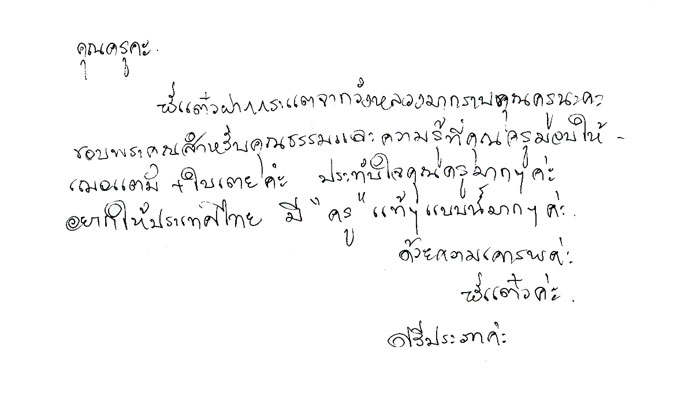 คุณครูคะ.
พี่แต๋วฝากกระแตจากวังหลวงมากราบคุณครูนะคะ
ขอบพระคุณสำหรับคุณธรรมและความรู้ที่คุณครูมอบให้ -
เฌอแตม + ใบเตยค่ะ ประทับใจคุณครูมากๆ ค่ะ
อยากให้ประเทศไทย มี "ครู" แท้ๆ แบบนี้มากๆ ค่ะ.
ด้วยความเคารพค่ะ
พี่แต๋วค่ะ.
ศรีประภาค่ะ